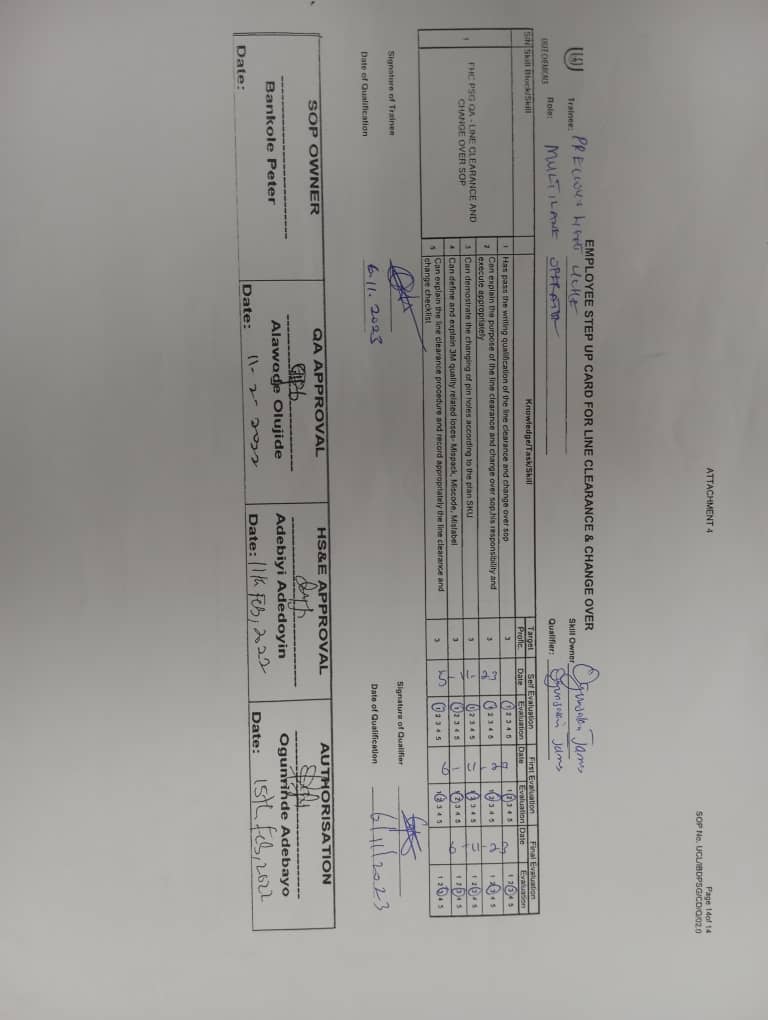 Page 14of 14
SOP No. UCL/IBDPSG/CD/Q/02.0
ATTACHMENT 4
EMPLOYEE STEP UP CARD FOR LINE CLEARANCE & CHANGE OVER
Trainee: PRECIOUS UCHE
Skill Owner: Ogunsakin James
Role: MULTILANE OPERATOR
Qualifier: Ogunsakin James
S/N Skill Block/Skill Knowledge/Task/Skill Target Profic. Self Evaluation First Evaluation Final Evaluation
Date Evaluation Date Evaluation Date Evaluation
1 FHC PSG QA - LINE CLEARANCE AND CHANGE OVER SOP
1 Has pass the writing qualification of the line clearance and change over sop 3 1 2 3 4 5 1 2 3 4 5 1 2 3 4 5
2 Can explain the purpose of the line clearance and change over sop,his responsibility and execute appropriately 3 1 2 3 4 5 1 2 3 4 5 1 2 3 4 5
3 Can demostrate the changing of pin holes according to the plan SKU 3 1 2 3 4 5 1 2 3 4 5 1 2 3 4 5
4 Can define and explain 3M quality related loses- Mispack, Miscode, Mislabel 3 1 2 3 4 5 1 2 3 4 5 1 2 3 4 5
5 Can explain the line clearance procedure and record appropriately the line clearance and change checklist 3 1 2 3 4 5 1 2 3 4 5 1 2 3 4 5
Signature of Trainee
Signature of Qualifier
Date of Qualification 6.11.2023
Date of Qualification 6/11/2023
SOP OWNER QA APPROVAL HS&E APPROVAL AUTHORISATION
Bankole Peter Alawode Olujide Adebiyi Adedoyin Ogunrinde Adebayo
Date: Date: 11-2-2022 Date: 11th Feb, 2022 Date: 15th Feb, 2022